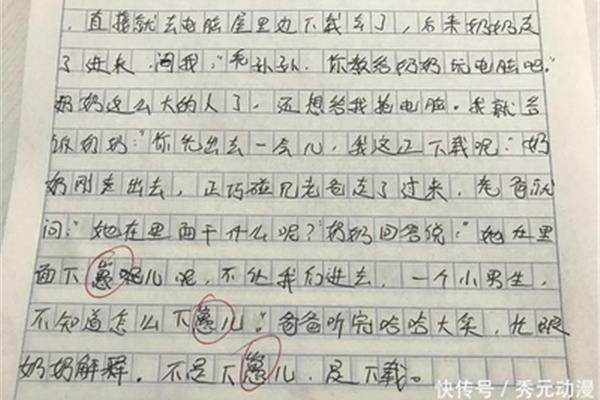 ，直接就去电脑屋里边下载去了，后来奶奶走
了进来，问我，“乖孙孙，你教给奶奶玩电脑吧。”
奶奶这么大的人了，还想给我抢电脑。我就告
饭奶奶：“你先出去一会儿，我这正下载呢。”奶
奶刚走出去，正巧碰见老爸走了过来，老爸就
问：“她在里面干什么呢？”奶奶回答说：“她在里
面下崽呢儿呢，不让我们进去，一个小男生，
不知道怎么下崽儿。”爸爸听完哈哈大笑，忙跟
奶奶解释，不是下崽儿，是下载。
快传号／秀元动漫